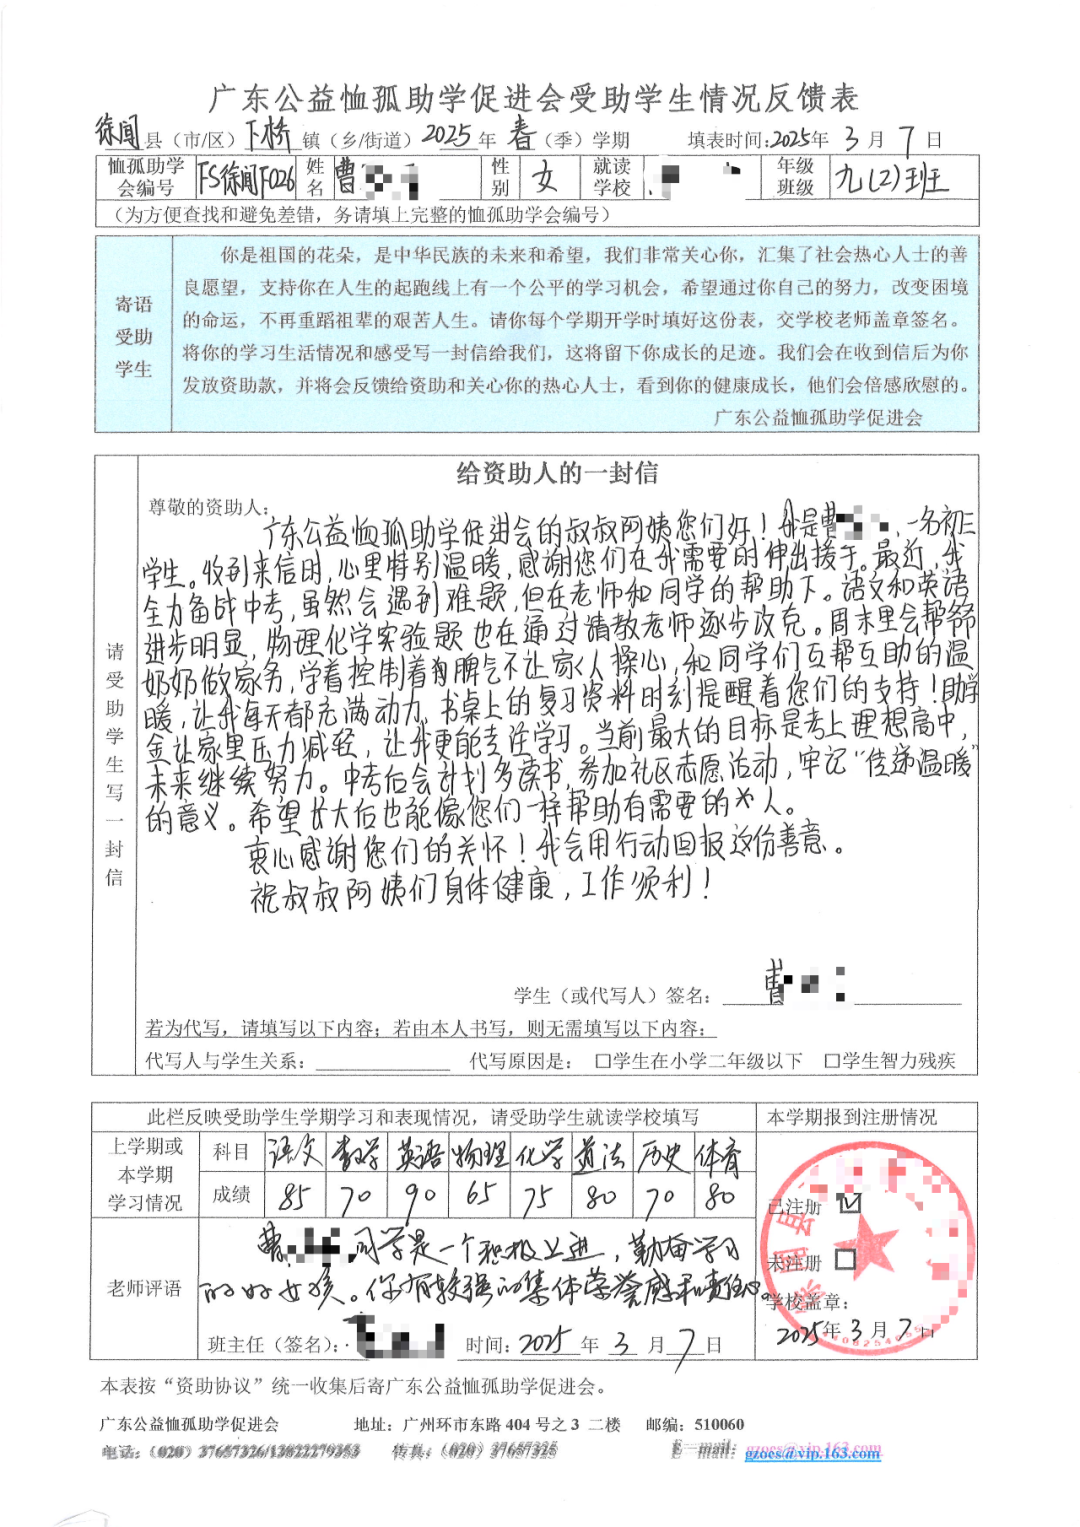 广东公益恤孤助学促进会受助学生情况反馈表
徐闻县（市/区）下桥镇（乡/街道）2025年春（季）学期 填表时间:2025年3月7日
恤孤助学会编号 FS徐闻F026 姓名 曹 性别 女 就读学校 年级班级 九(2)班
（为方便查找和避免差错，务请填上完整的恤孤助学会编号）
寄语受助学生
你是祖国的花朵，是中华民族的未来和希望，我们非常关心你，汇集了社会热心人士的善
良愿望，支持你在人生的起跑线上有一个公平的学习机会，希望通过你自己的努力，改变困境
的命运，不再重蹈祖辈的艰苦人生。请你每个学期开学时填好这份表，交学校老师盖章签名。
将你的学习生活情况和感受写一封信给我们，这将留下你成长的足迹。我们会在收到信后为你
发放资助款，并将会反馈给资助和关心你的热心人士，看到你的健康成长，他们会倍感欣慰的。
广东公益恤孤助学促进会
请受助学生写一封信
给资助人的一封信
尊敬的资助人：
广东公益恤孤助学促进会的叔叔阿姨您们好！我是曹，一名初三
学生。收到来信时，心里特别温暖，感谢您们在我需要时伸出援手。最近，我
全力备战中考，虽然会遇到难题，但在老师和同学的帮助下。语文和英语
进步明显，物理化学实验题也在通过请教老师逐步攻克。周末里会帮爷爷
奶奶做家务，学着控制着自脾气不让家人操心，和同学们互帮互助的温
暖，让我每天都充满动力，书桌上的复习资料时刻提醒着您们的支持！助学
金让家里压力减轻，让我更能专注学习。当前最大的目标是考上理想高中，
未来继续努力。中考后会计划多读书，参加社区志愿活动，牢记“传递温暖”
的意义。希望长大后也能像您们一样帮助有需要的人。
衷心感谢您们的关怀！我会用行动回报这份善意。
祝叔叔阿姨们身体健康，工作顺利！
学生（或代写人）签名：曹
若为代写，请填写以下内容；若由本人书写，则无需填写以下内容：
代写人与学生关系： 代写原因是： □学生在小学二年级以下 □学生智力残疾
此栏反映受助学生学期学习和表现情况，请受助学生就读学校填写 本学期报到注册情况
上学期或本学期学习情况
科目 语文 数学 英语 物理 化学 道法 历史 体育
成绩 85 70 90 65 75 80 70 80
已注册 ☑
未注册 □
学校盖章：
2025年3月7日
老师评语
曹 同学是一个积极上进，勤奋学习
的好女孩。你有较强的集体荣誉感和责任心。
班主任（签名）： 时间：2025年3月7日
本表按“资助协议”统一收集后寄广东公益恤孤助学促进会。
广东公益恤孤助学促进会 地址：广州环市东路 404 号之 3 二楼 邮编：510060
电话：（020）37657326/13822279353 传真：（020）37657325 E-mail: gzoes@vip.163.com